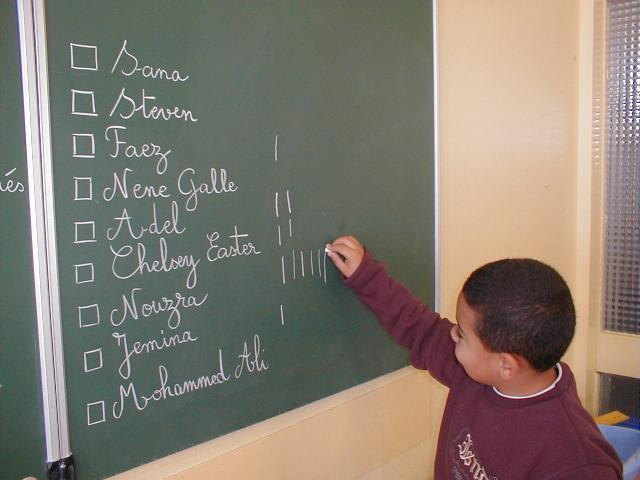 és
Sana
Steven
Faez |
Nene Galle ||
Adel ||
Chelsey Easter ||||||
Nouzra |
Jemina
Mohammed Ali